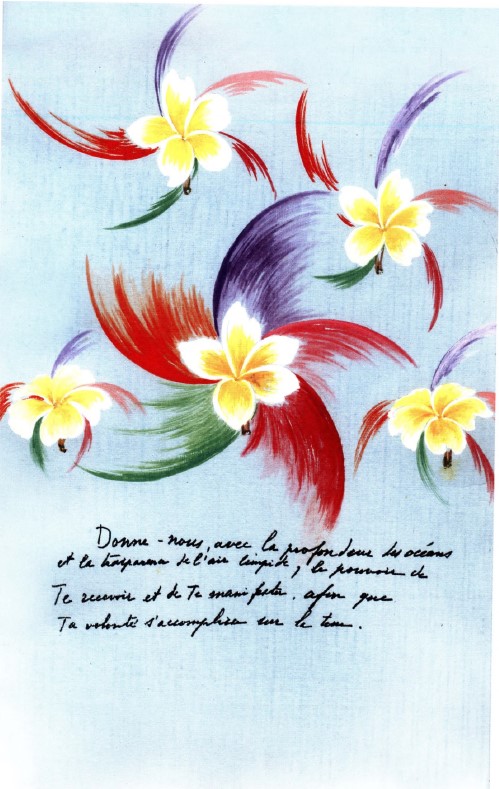 Donne-nous, avec la profondeur des océans
et la trasparence de l'air limpide, le pouvoir de
Te recevoir et de Te manifester. afin que
Ta volonté s'accomplisse sur la terre.